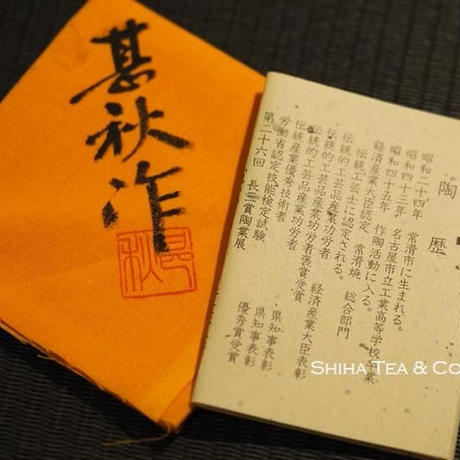 甚秋作
陶歴
昭和二十四年 常滑市に生まれる。
昭和四十三年 名古屋市立工業高等学校卒業
昭和四十五年 作陶活動に入る。
経済産業大臣認定 常滑焼 総合部門
伝統工芸士に認定される。
伝統的工芸品産業功労者褒賞受賞
伝統的工芸品産業功労者 経済産業大臣表彰
伝統産業優秀技術者 県知事表彰
労働省認定技能検定試験 県知事表彰
第二十六回 長三賞陶業展 優秀賞受賞
SHIHA TEA & CO